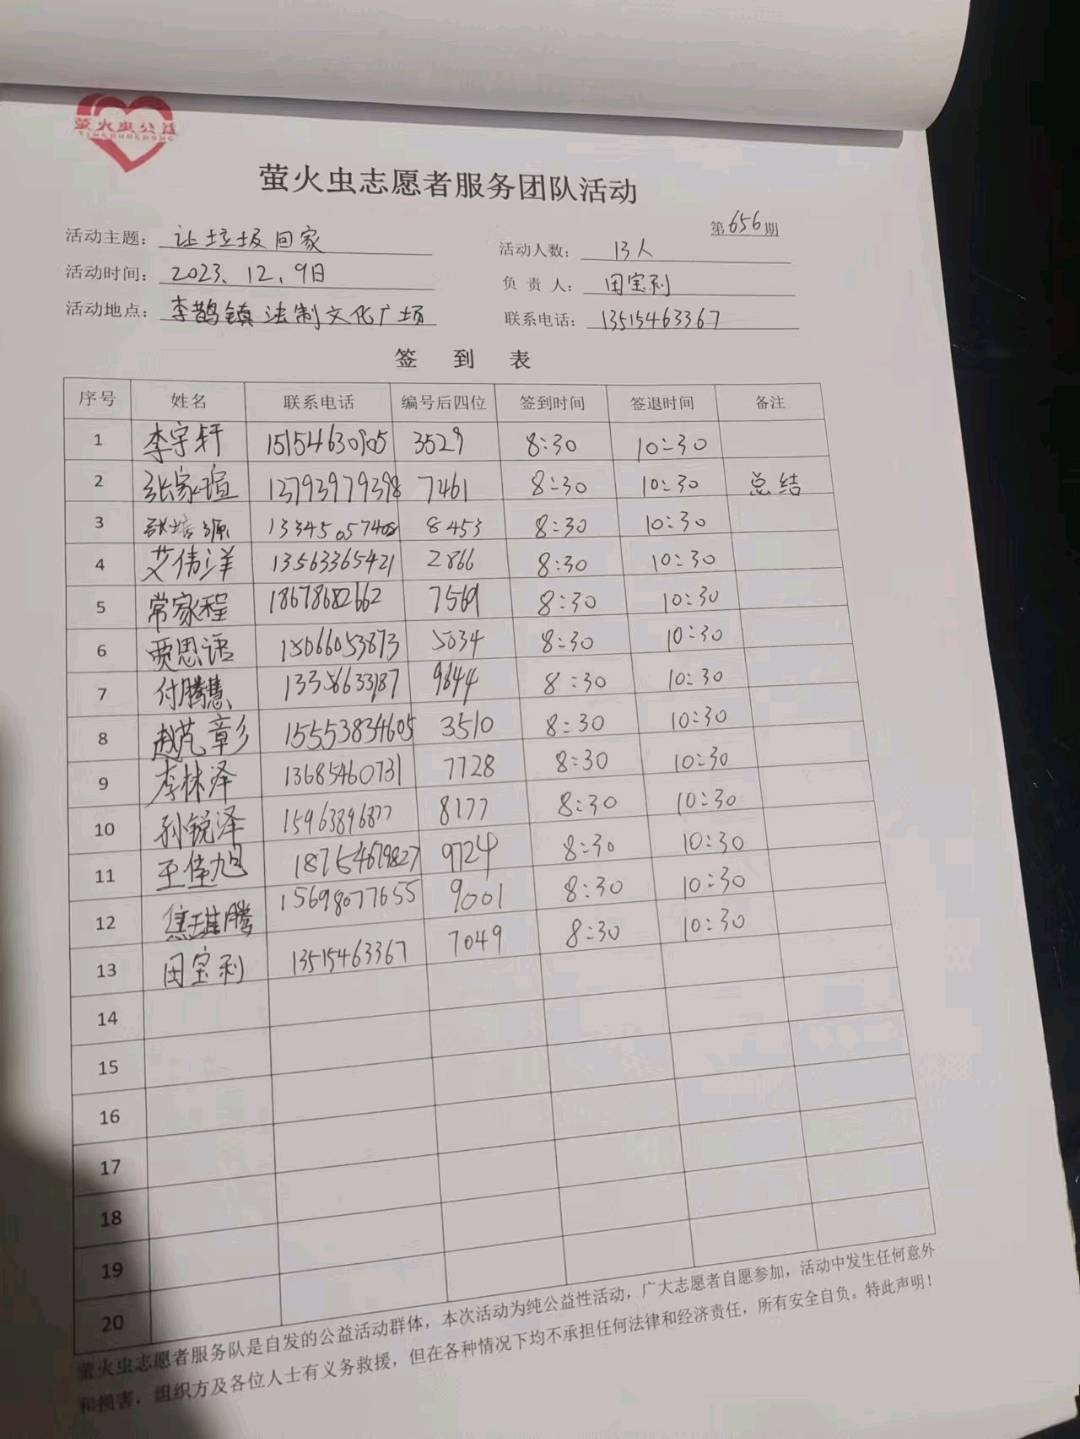 萤火虫公益
萤火虫志愿者服务团队活动
第656期
活动主题：让垃圾回家 活动人数：13人
活动时间：2023.12.9日 负责人：田宝利
活动地点：李鹊镇法制文化广场 联系电话：13515463367
签到表
序号 姓名 联系电话 编号后四位 签到时间 签退时间 备注
1 李宇轩 15154630905 3529 8:30 10:30
2 张家瑄 13793979398 7461 8:30 10:30 总结
3 张培源 13345057408 8453 8:30 10:30
4 艾伟洋 13563365421 2866 8:30 10:30
5 常家程 18678682662 7569 8:30 10:30
6 贾思语 15066053873 5034 8:30 10:30
7 付腾慧 13356633187 9844 8:30 10:30
8 赵芃彰 15553834605 3510 8:30 10:30
9 李林泽 13685460731 7728 8:30 10:30
10 孙锐泽 15963896877 8177 8:30 10:30
11 王佳旭 18754679827 9724 8:30 10:30
12 焦雄腾 15698077655 9001 8:30 10:30
13 田宝利 13515463367 7049 8:30 10:30
14
15
16
17
18
19
20
萤火虫志愿者服务队是自发的公益活动群体，本次活动为纯公益性活动，广大志愿者自愿参加，活动中发生任何意外
和损害，组织方及各位人士有义务救援，但在各种情况下均不承担任何法律和经济责任，所有安全自负。特此声明！